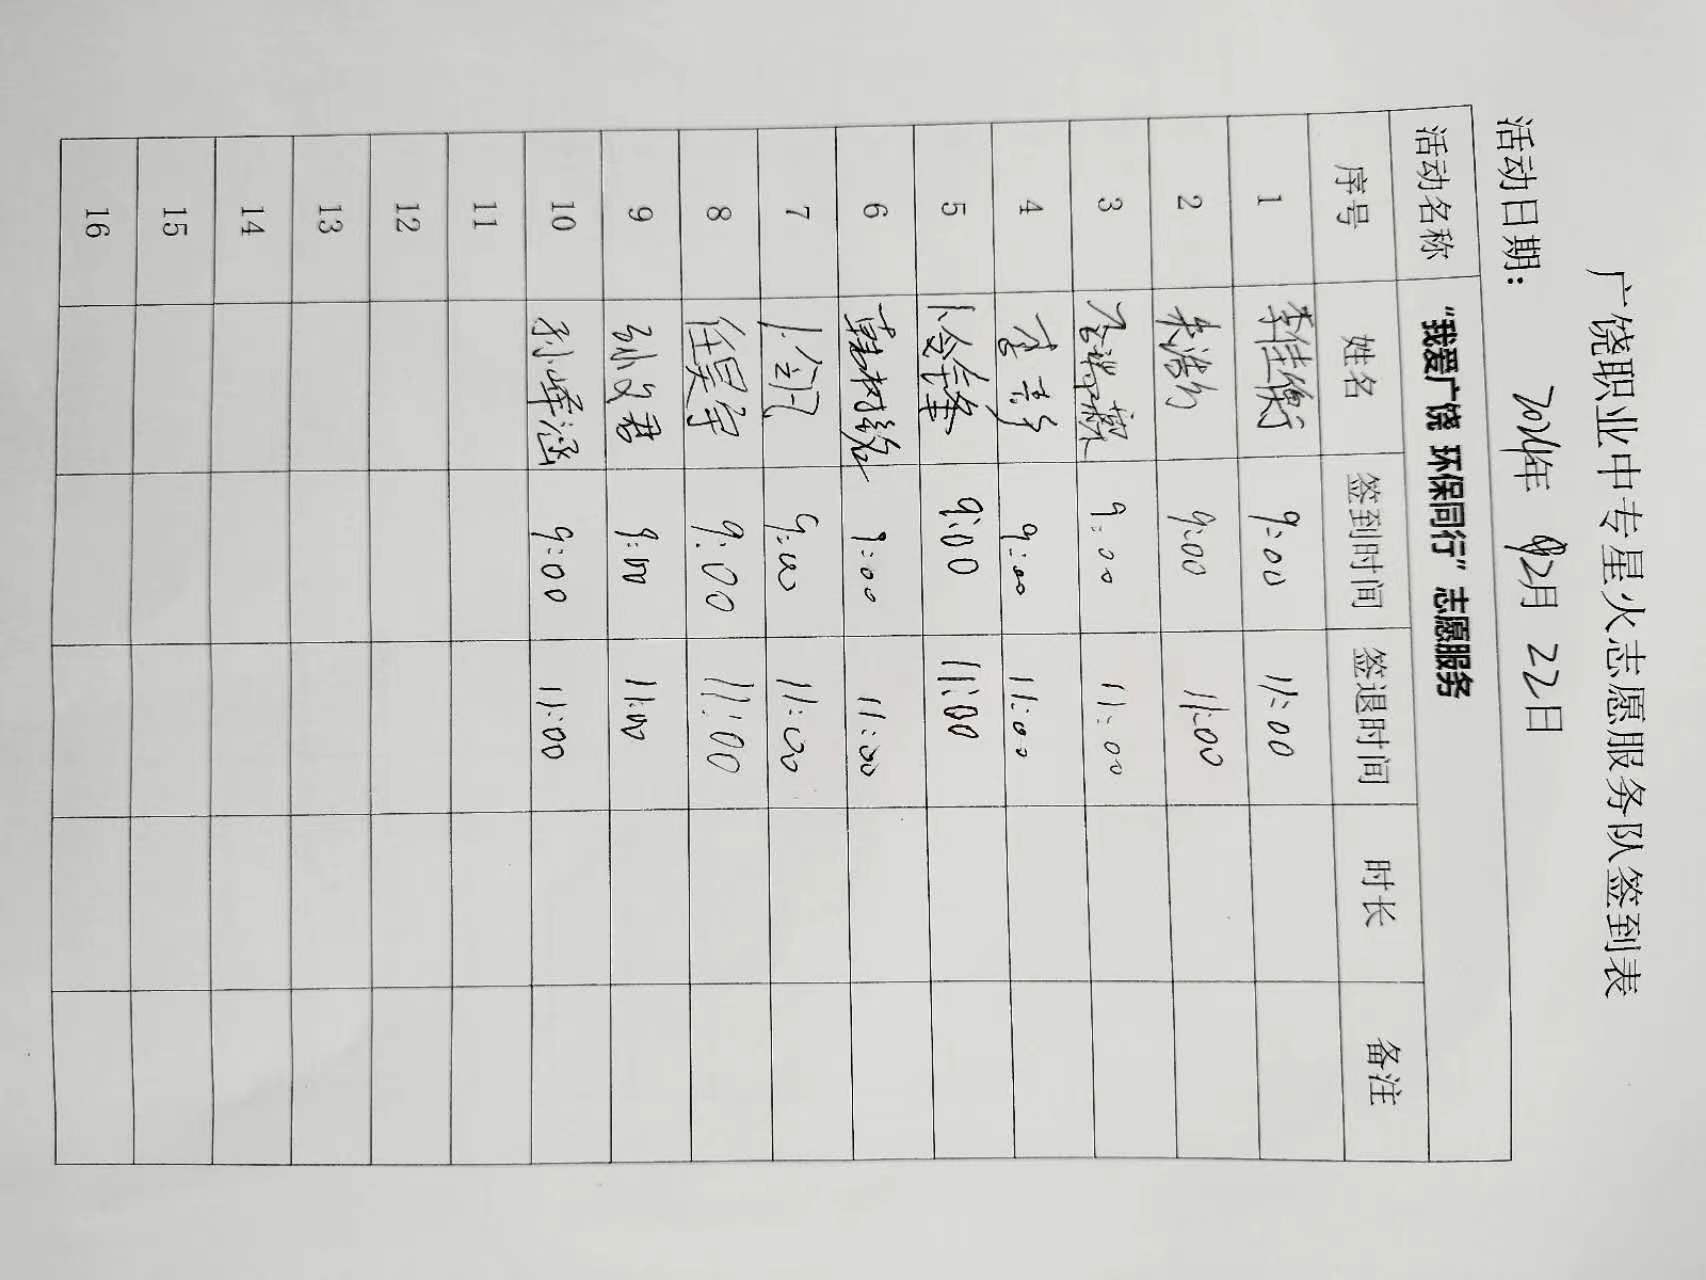 广饶职业中专星火志愿服务队签到表
活动日期： 2024年 12月 22日
活动名称 “我爱广饶 环保同行”志愿服务
序号 姓名 签到时间 签退时间 时长 备注
1 李佳衡 9:00 11:00
2 9:00 11:00
3 9:00 11:00
4 9:00 11:00
5 9:00 11:00
6 9:00 11:00
7 9:00 11:00
8 任昊宇 9:00 11:00
9 孙文君 9:00 11:00
10 孙小婵涵 9:00 11:00
11
12
13
14
15
16